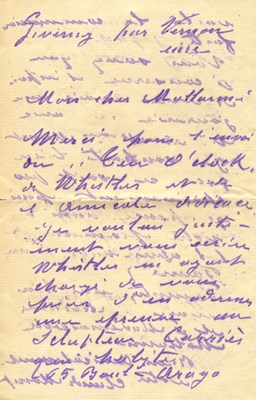 Giverny par Vernon
Eure
Mon cher Mallarmé
Merci pour l'envoi
du "Ten O'clock"
de Whistler et de
l'amicale dédicace.
je voulais juste-
ment vous écrire
Whistler m'ayant
chargé de vous
prier d'en adresser
une épreuve au
Sculpteur Carriès
qui habite
65 Boulᵈ Arago